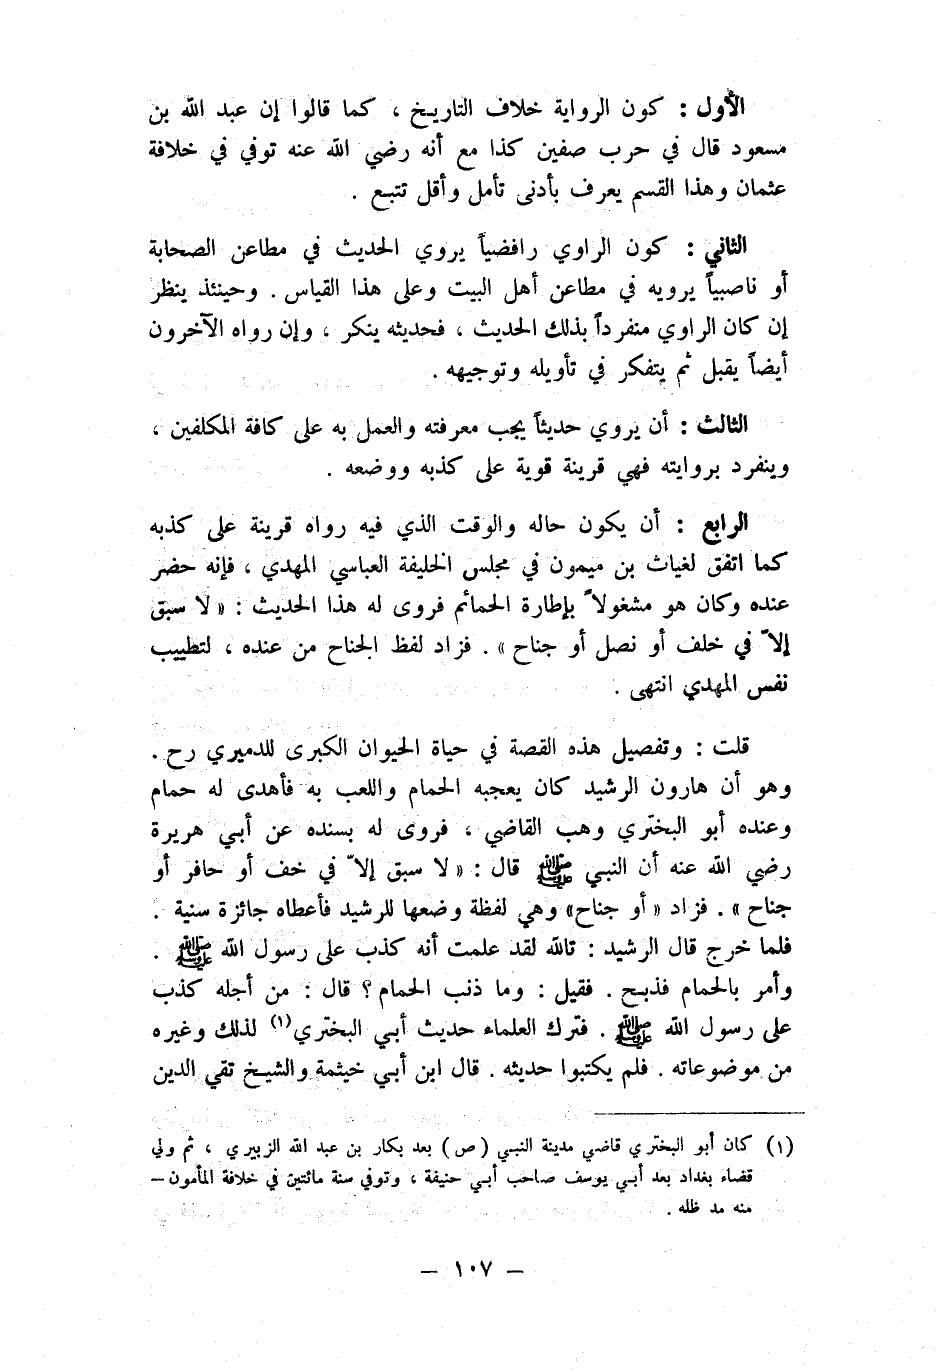 الأول : كون الرواية خلاف التاريخ ، كما قالوا إن عبد الله بن
مسعود قال في حرب صفين كذا مع أنه رضي الله عنه توفي في خلافة
عثمان وهذا القسم يعرف بأدنى تأمل وأقل تتبع .
الثاني : كون الراوي رافضياً يروي الحديث في مطاعن الصحابة
أو ناصبياً يرويه في مطاعن أهل البيت وعلى هذا القياس . وحينئذ ينظر
إن كان الراوي منفرداً بذلك الحديث ، فحديثه ينكر ، وإن رواه الآخرون
أيضاً يقبل ثم يتفكر في تأويله وتوجيهه .
الثالث : أن يروي حديثاً يجب معرفته والعمل به على كافة المكلفين ،
وينفرد بروايته فهي قرينة قوية على كذبه ووضعه .
الرابع : أن يكون حاله والوقت الذي فيه رواه قرينة على كذبه
كما اتفق لغياث بن ميمون في مجلس الخليفة العباسي المهدي ، فإنه حضر
عنده وكان هو مشغولاً بإطارة الحمائم فروى له هذا الحديث : « لا سبق
إلاّ في خلف أو نصل أو جناح » . فزاد لفظ الجناح من عنده ، لتطييب
نفس المهدي انتهى .
قلت : وتفصيل هذه القصة في حياة الحيوان الكبرى للدميري رح .
وهو أن هارون الرشيد كان يعجبه الحمام واللعب به فأهدى له حمام
وعنده أبو البختري وهب القاضي ، فروى له بسنده عن أبي هريرة
رضي الله عنه أن النبي ﷺ قال : « لا سبق إلاّ في خف أو حافر أو
جناح » . فزاد « أو جناح» وهي لفظة وضعها للرشيد فأعطاه جائزة سنية .
فلما خرج قال الرشيد : تالله لقد علمت أنه كذب على رسول الله ﷺ .
وأمر بالحمام فذبح . فقيل : وما ذنب الحمام ؟ قال : من أجله كذب
على رسول الله ﷺ . فترك العلماء حديث أبي البختري(١) لذلك وغيره
من موضوعاته . فلم يكتبوا حديثه . قال ابن أبي خيثمة والشيخ تقي الدين
(١) كان أبو البختري قاضي مدينة النبي (ص) بعد بكار بن عبد الله الزبيري ، ثم ولي
قضاء بغداد بعد أبي يوسف صاحب أبي حنيفة ، وتوفي سنة مائتين في خلافة المأمون –
منه مد ظله .
– ١٠٧ –